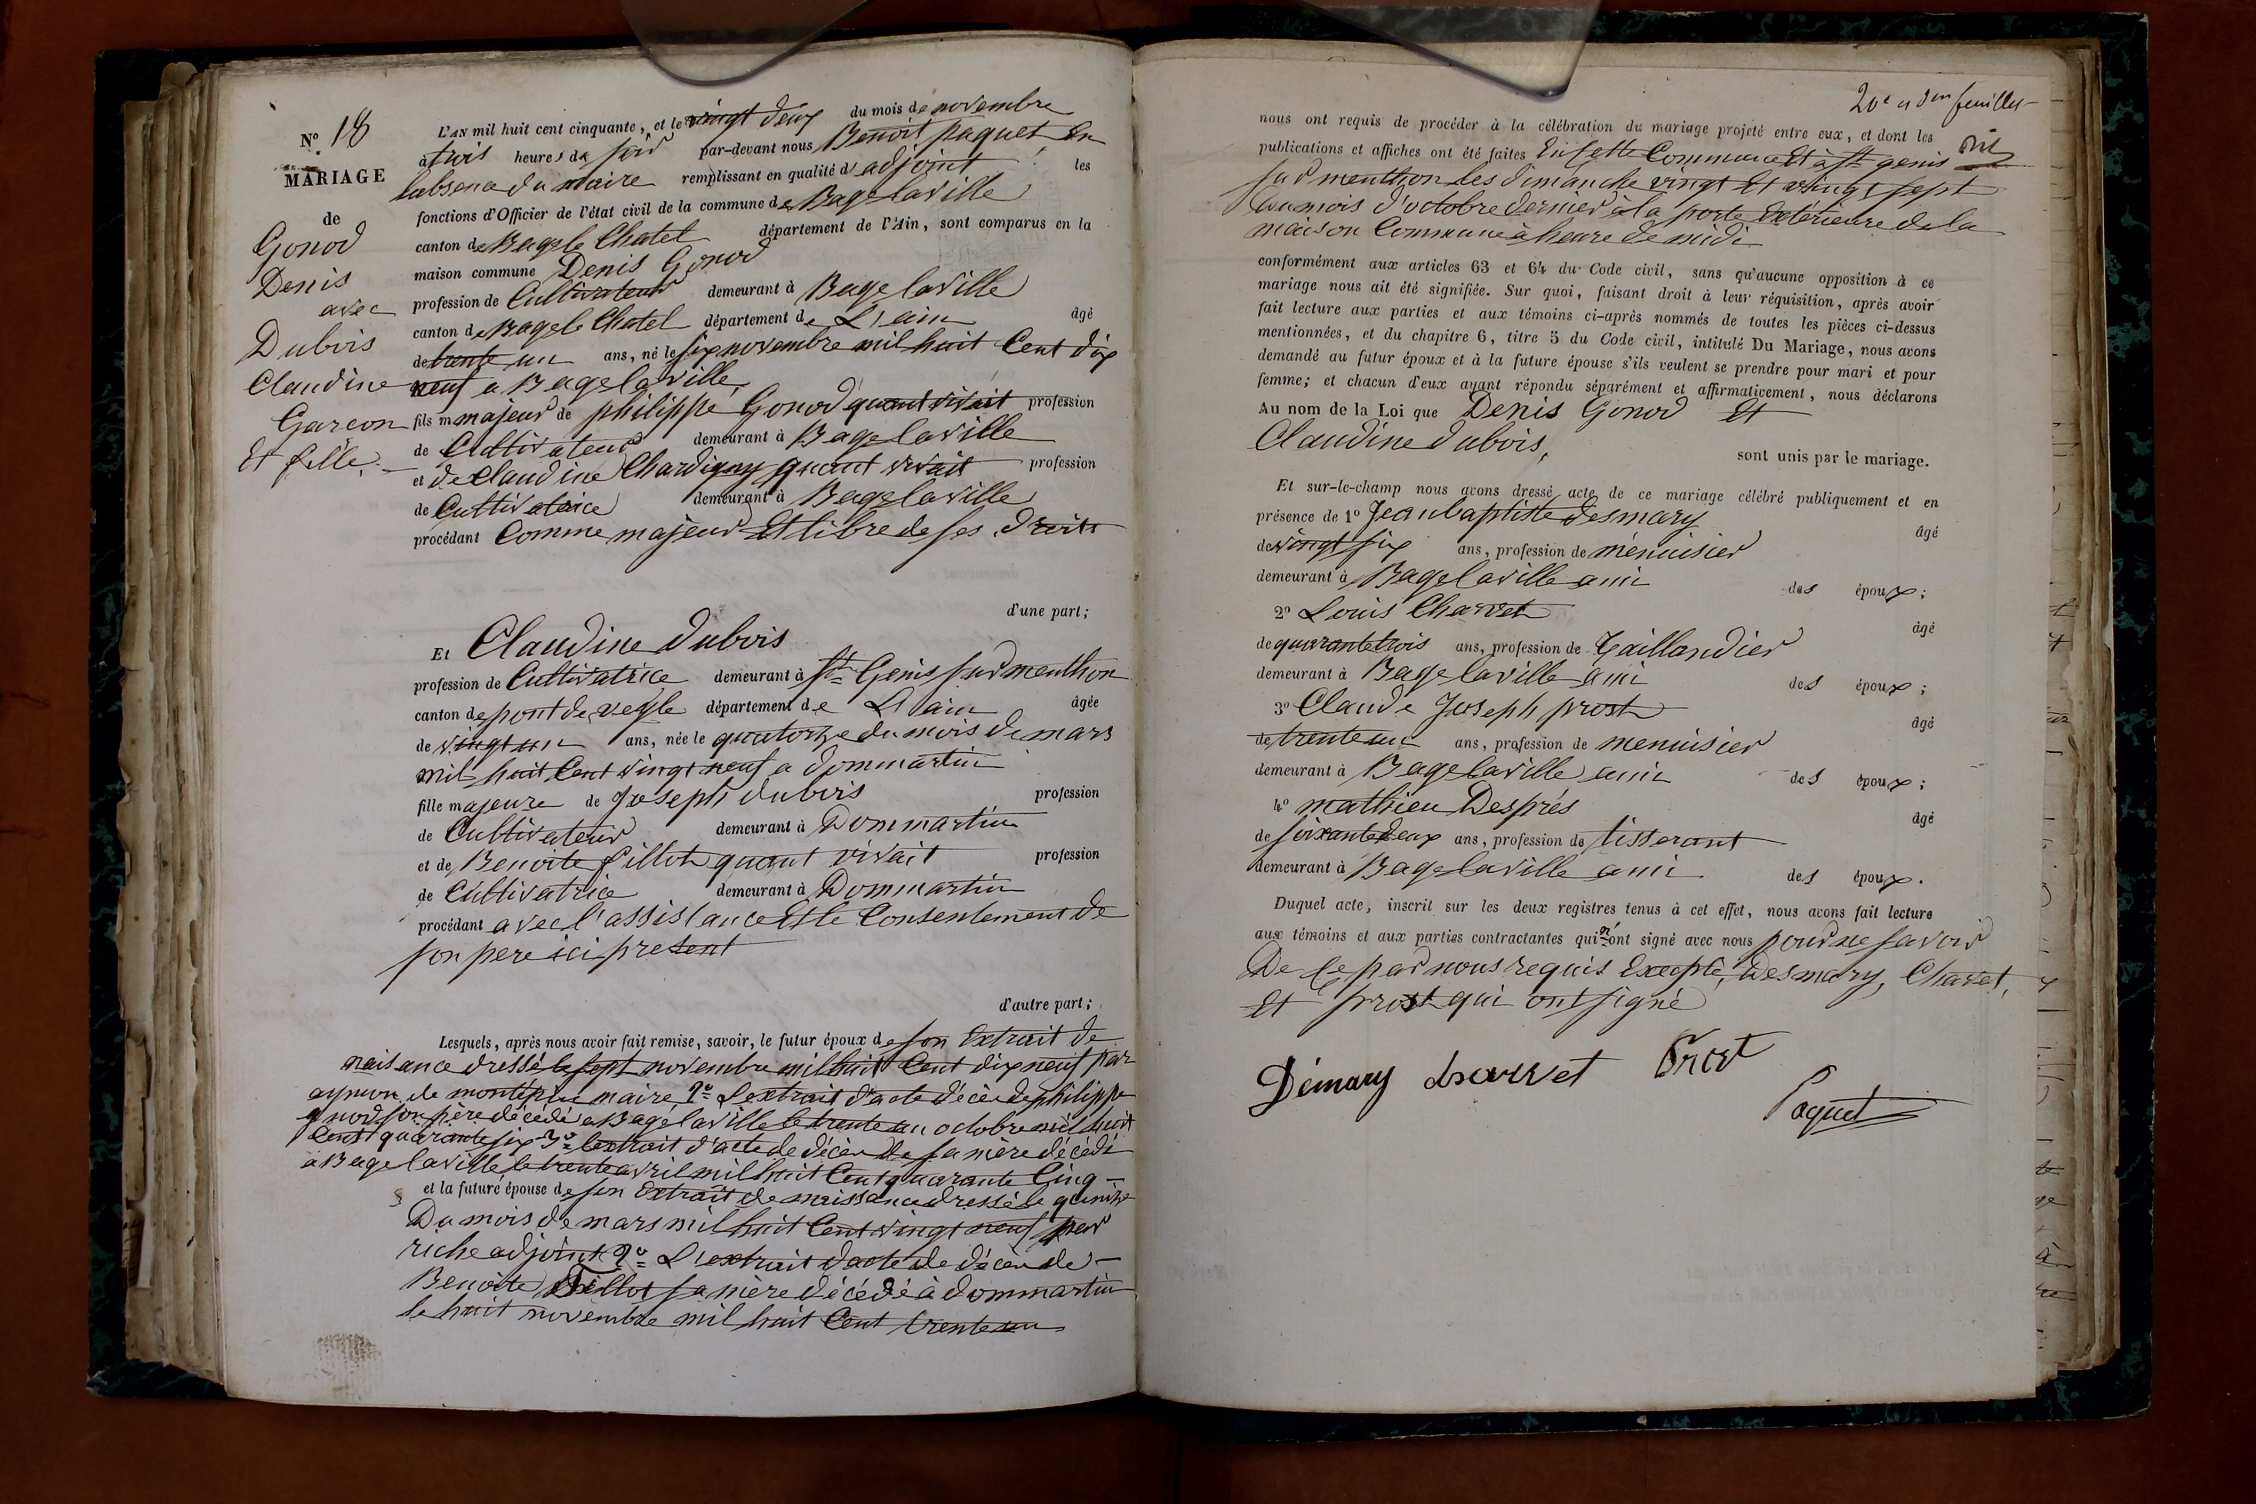 N° 18
MARIAGE
de
Gonod
Denis
avec
Dubois
Claudine
Garcon
Et fille.
L'AN mil huit cent cinquante, et le vingt deux du mois de novembre
à trois heures du soir par-devant nous Benoit paquet, En
labsence du maire remplissant en qualité d'adjoint les
fonctions d'Officier de l'état civil de la commune de Bagelaville
canton de Bagele Chatel département de l'Ain, sont comparus en la
maison commune Denis Gonod
profession de Cultivateur demeurant à Bagelaville
canton de Bagele Chatel département de L'ain âgé
de trente un ans, né le six novembre mil huit Cent dix
neuf a Bagelaville
fils majeur de philippe Gonod quant vivait profession
de Cultivateur demeurant à Bagelaville
et de Claudine Chardigny quant vivait profession
de Cultivatrice demeurant à Bagelaville
procédant Comme majeur Et libre de ses droits
d'une part;
Et Claudine dubois
profession de Cultivatrice demeurant à St Genis sur menthon
canton de pont de veyle département de L'ain âgée
de vingt un ans, née le quatorze du mois de mars
mil huit Cent vingt neuf a dommartin
fille majeure de Joseph dubois profession
de Cultivateur demeurant à Dommartin
et de Benoite fillot quant vivait profession
de Cultivatrice demeurant à Dommartin
procédant avec l'assistance Et le Consentement de
son pere ici present
d'autre part;
Lesquels, après nous avoir fait remise, savoir, le futur époux de son Extrait de
naisance dressé le sept novembre mil huit Cent dix neuf par
aymon de montépin maire 2° L'extrait d'acte décès de philippe
gonod son père décédé a Bagélaville le trente un octobre mil huit
Cent quarante six 3° lextrait d'acte de décès de sa mère décédé
a Bagelaville le trente avril mil huit Cent quarante Cinq
et la future épouse de son Extrait de naissance dressé le quinize
Du mois de mars mil huit Cent vingt neuf par
riche adjoint 2° L'extrait d'acte de décès de
Benoite Fillot sa mère décédé à dommartin
le huit novembre mil huit Cent trente un
20e et 3en feuillet
nous ont requis de procéder à la célébration du mariage projeté entre eux, et dont les
publications et affiches ont été faites En sette Commune Et à St genis
sur menthon les dimanche vingt Et vingt sept
du mois d'octobre dernier à la porte Extérieure de la
maison Commune à heure de midi
conformément aux articles 63 et 64 du Code civil, sans qu'aucune opposition à ce
mariage nous ait été signifiée. Sur quoi, faisant droit à leur réquisition, après avoir
fait lecture aux parties et aux témoins ci-après nommés de toutes les pièces ci-dessus
mentionnées, et du chapitre 6, titre 5 du Code civil, intitulé Du Mariage, nous avons
demandé au futur époux et à la future épouse s'ils veulent se prendre pour mari et pour
femme; et chacun d'eux ayant répondu séparément et affirmativement, nous déclarons
Au nom de la Loi que Denis Gonod Et
Claudine dubois,
sont unis par le mariage.
Et sur-le-champ nous avons dressé acte de ce mariage célébré publiquement et en
présence de 1° Jean baptiste desmary âgé
de vingt six ans, profession de ménuisier
demeurant à Bagelaville ami des époux;
2° Louis Charvet âgé
de quarante trois ans, profession de Taillandier
demeurant à Bagelaville ami des époux;
3° Claude Joseph prost âgé
de trente un ans, profession de menuisier
demeurant à Bagelaville ami des époux;
4° mathieu Després âgé
de soixante deux ans, profession de tisserant
demeurant à Bagelaville ami des époux.
Duquel acte, inscrit sur les deux registres tenus à cet effet, nous avons fait lecture
aux témoins et aux parties contractantes qui n'ont signé avec nous pour ne savoir
De ce par nous requis Excepté, Desmary, Charvet,
Et prost qui ont signé
Démary charvet Prost
Paquet